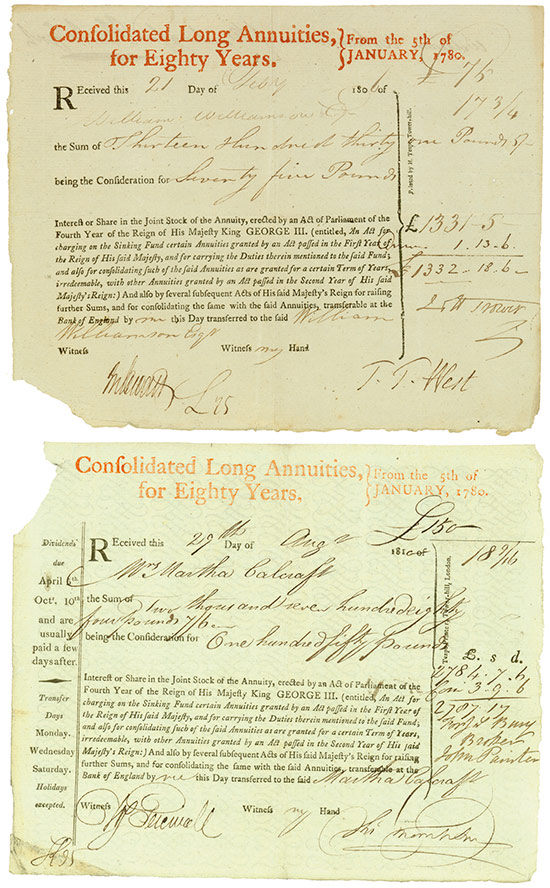 Conſolidated Long Annuities,
for Eighty Years.
From the 5th of
JANUARY, 1780.
£ 75
Received this 21 Day of 1806
17 3/4
William Williamson Esq
the Sum of Thirteen Hundred thirty one Pounds 5/-
being the Consideration for Seventy five Pounds
Printed by H. Teape, Tower-hill.
Intereſt or Share in the Joint Stock of the Annuity, erected by an Act of Parliament of the
Fourth Year of the Reign of His Majeſty King GEORGE III. (entitled, An Act for
charging on the Sinking Fund certain Annuities granted by an Act paſſed in the Firſt Year of
the Reign of His ſaid Majeſty, and for carrying the Duties therein mentioned to the ſaid Fund;
and alſo for conſolidating ſuch of the ſaid Annuities as are granted for a certain Term of Years,
irredeemable, with other Annuities granted by an Act paſſed in the Second Year of His ſaid
Majeſty's Reign:) And alſo by ſeveral ſubſequent Acts of His ſaid Majeſty's Reign for raiſing
further Sums, and for conſolidating the ſame with the ſaid Annuities, transferable at the
Bank of England by me this Day transferred to the ſaid William
Williamson Esqr
Witneſs Witneſs my Hand
£1331-5
1.13-6
£1332-18.6-
£75
T. T. West
Conſolidated Long Annuities,
for Eighty Years.
From the 5th of
JANUARY, 1780.
£150
Received this 29th Day of Augt 1810
Mrs Martha Calcraft
the Sum of two thousand seven hundred eighty
four Pounds 7/6
being the Conſideration for One hundred fifty Pounds
Dividends
due
April 6th.
Octr. 10th
and are
usually
paid a few
days after.
Transfer
Days
Monday.
Wednesday
Saturday.
Holidays
excepted.
Tower-hill, London.
£. s d.
2784.7.6
3-9.6
2787.17
Broker
John Painter
Intereſt or Share in the Joint Stock of the Annuity, erected by an Act of Parliament of the
Fourth Year of the Reign of His Majeſty King GEORGE III. (entitled, An Act for
charging on the Sinking Fund certain Annuities granted by an Act paſſed in the Firſt Year of
the Reign of His ſaid Majeſty, and for carrying the Duties therein mentioned to the ſaid Fund;
and alſo for conſolidating ſuch of the ſaid Annuities as are granted for a certain Term of Years,
irredeemable, with other Annuities granted by an Act paſſed in the Second Year of His ſaid
Majeſty's Reign:) And alſo by ſeveral ſubſequent Acts of His ſaid Majeſty's Reign for raiſing
further Sums, and for conſolidating the ſame with the ſaid Annuities, transferable at the
Bank of England by me this Day transferred to the ſaid Martha Calcraft
Witneſs Witneſs my Hand